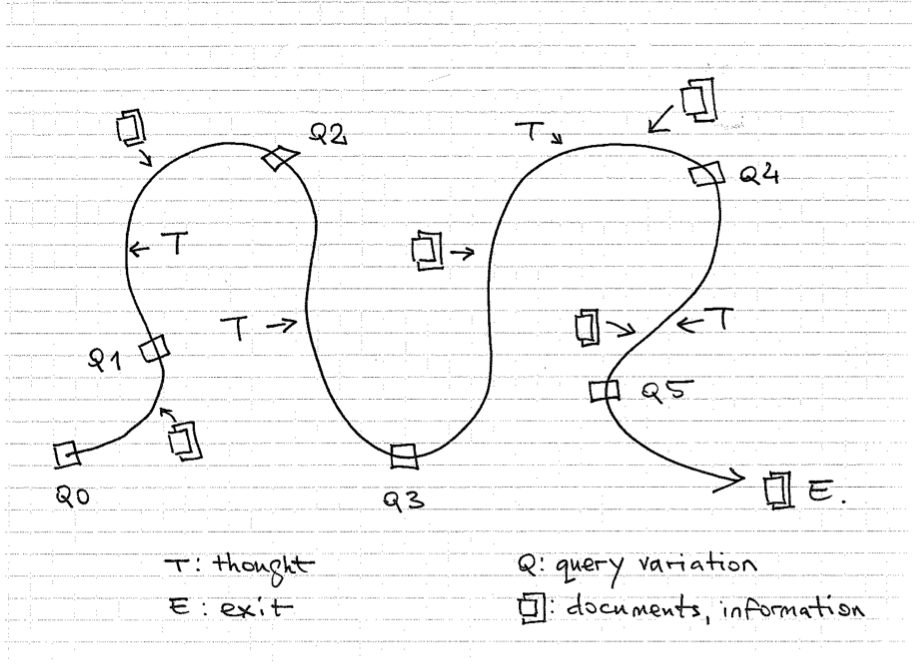 Q2
T
Q4
T
T
T
Q1
Q5
Q0
Q3
E.
T: thought
E: exit
Q: query variation
: documents, information